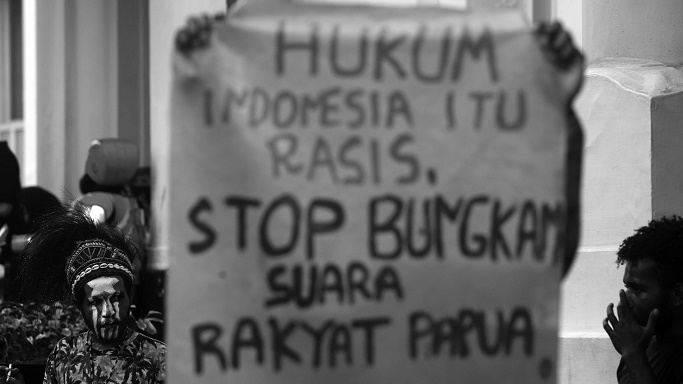 HUKUM
INDONESIA ITU
RASIS.
STOP BUNGKAM
SUARA
RAKYAT PAPUA.